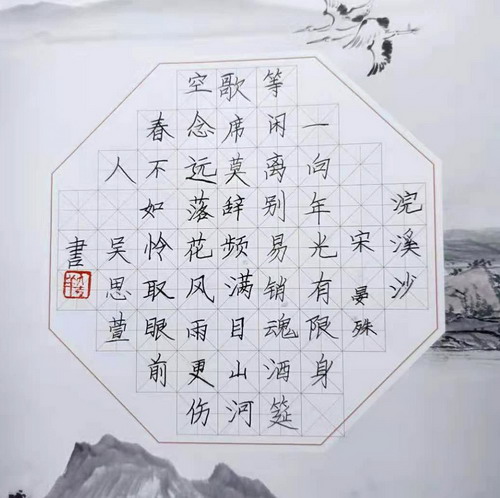 浣溪沙
宋 晏殊
一向年光有限身
等闲离别易销魂酒筵
歌席莫辞频满目山河
空念远落花风雨更伤
春不如怜取眼前
人 吴思萱
書